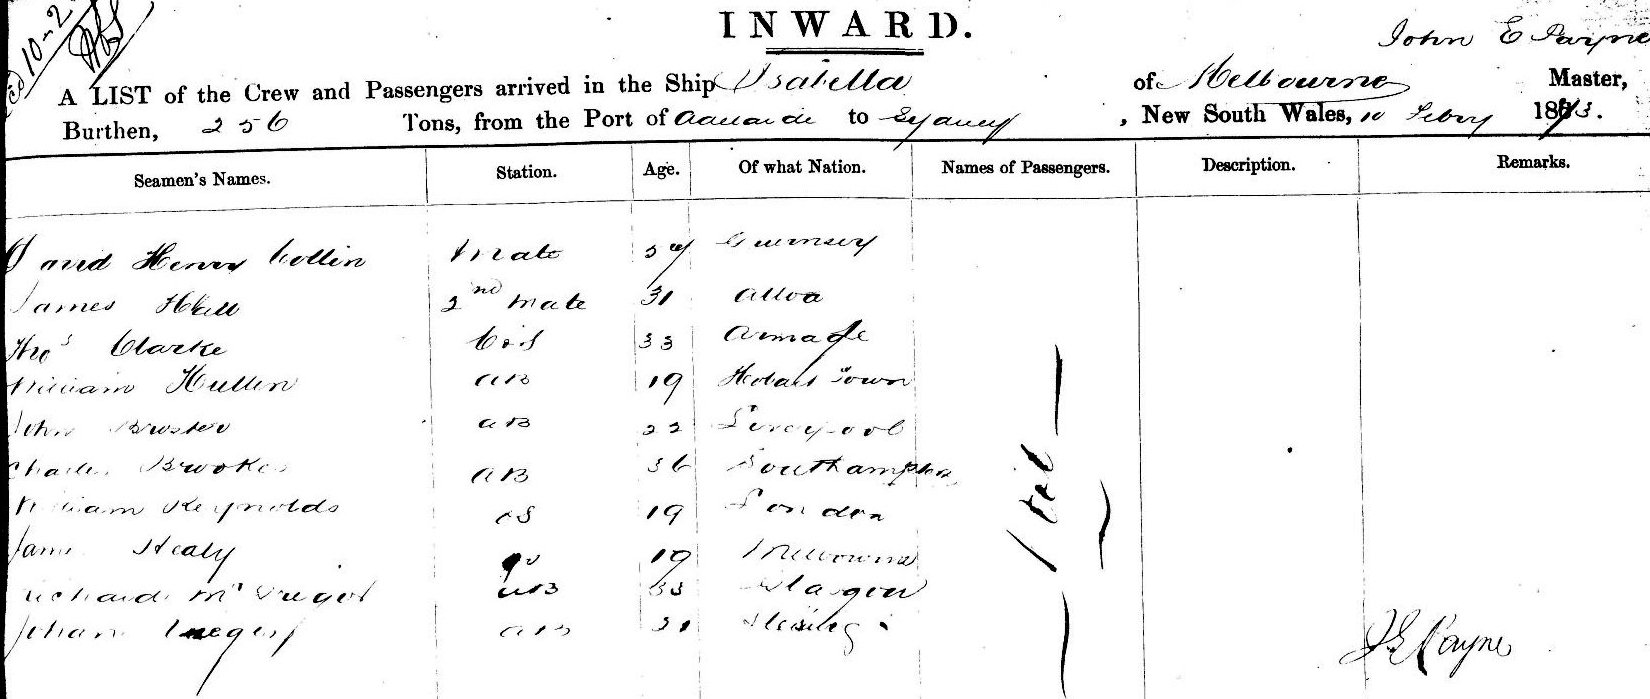 10-2
INWARD.
John E Payne
A LIST of the Crew and Passengers arrived in the Ship Isabella of Melbourne Master,
Burthen, 256 Tons, from the Port of Adelaide to Sydney, New South Wales, 10 Febry 1873.
Seamen's Names. Station. Age. Of what Nation. Names of Passengers. Description. Remarks.
David Henry Collin Mate 59 Guernsey
James Hall 2nd Mate 31 Alloa
Thos Clarke C&S 33 Armagh
William Hullen AB 19 Hobart Town
John AB 22 Liverpool
Charles Brookes AB 36 Southampton
William Reynolds OS 19 London
James Healy 19 Melbourne
Richard McGregor AB 33 Glasgow
Johan AB 21
Nil
J E Payne